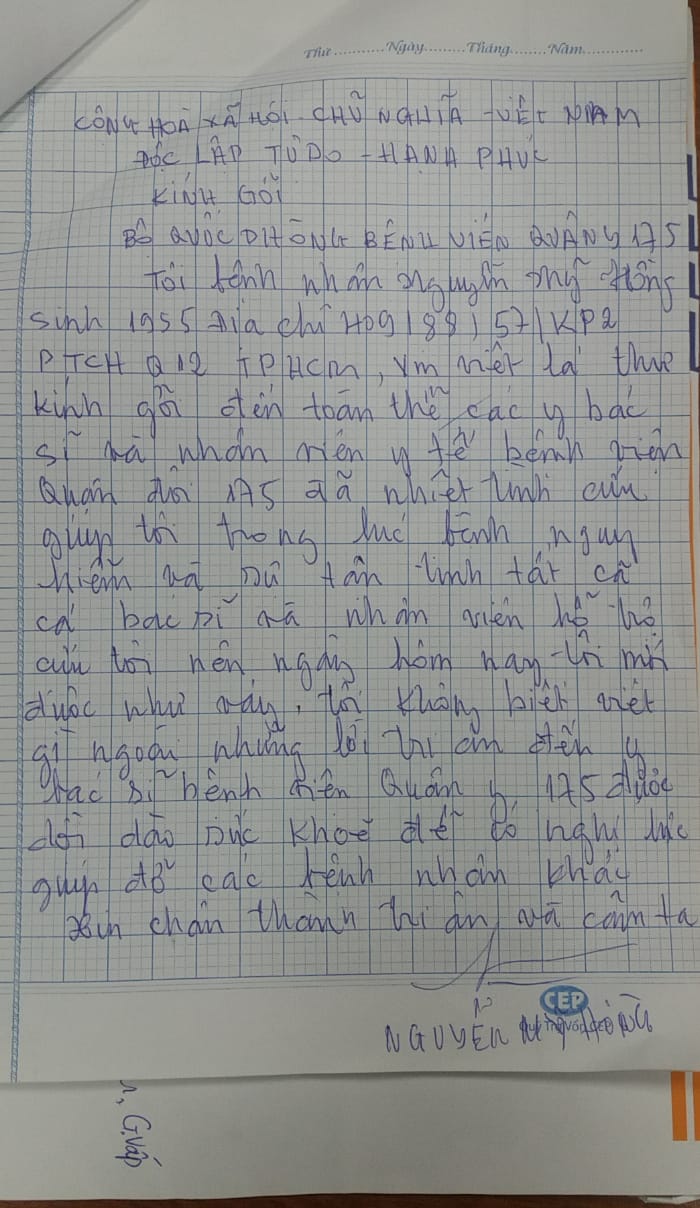 Thứ............Ngày.........Tháng.........Năm..............
CÔNG HOÀ XÃ HÓI CHŨ NGHĨA VIÊT NAM
ĐÓC LẬP TỰ DO - HANH PHÚC
KÍNH GỐI
BÔ QUỐC PHÒNG BÊNH VIÊN QUÂN Y 175
Tôi bênh nhân Nguyễn Mỹ Hồng
Sinh 1955 Địa chỉ H09/88/57/KP2
PTCH Q12 TPHCM, viết lá thư
kính gỡi đến toàn thể các y bác
sĩ và nhân viên y tế bênh viên
Quân đôi 175 đã nhiêt tình cứu
giúp tôi trong lúc bênh nguy
hiểm và sư tân tình tất cả
cá bác sĩ và nhân viên hổ trơ
cứu tôi nên ngày hôm nay tôi mới
đươc như vây, tôi không biết viết
gì ngoài những lời tri ân đến y
bác sĩ bênh viên Quân y 175 đươc
dồi dào sức khoẻ để có nghi lưc
giúp đở các bênh nhân khác
xin chân thành tri ân và cãm ta
CEP
NGUYỄN
n, G.Vấp